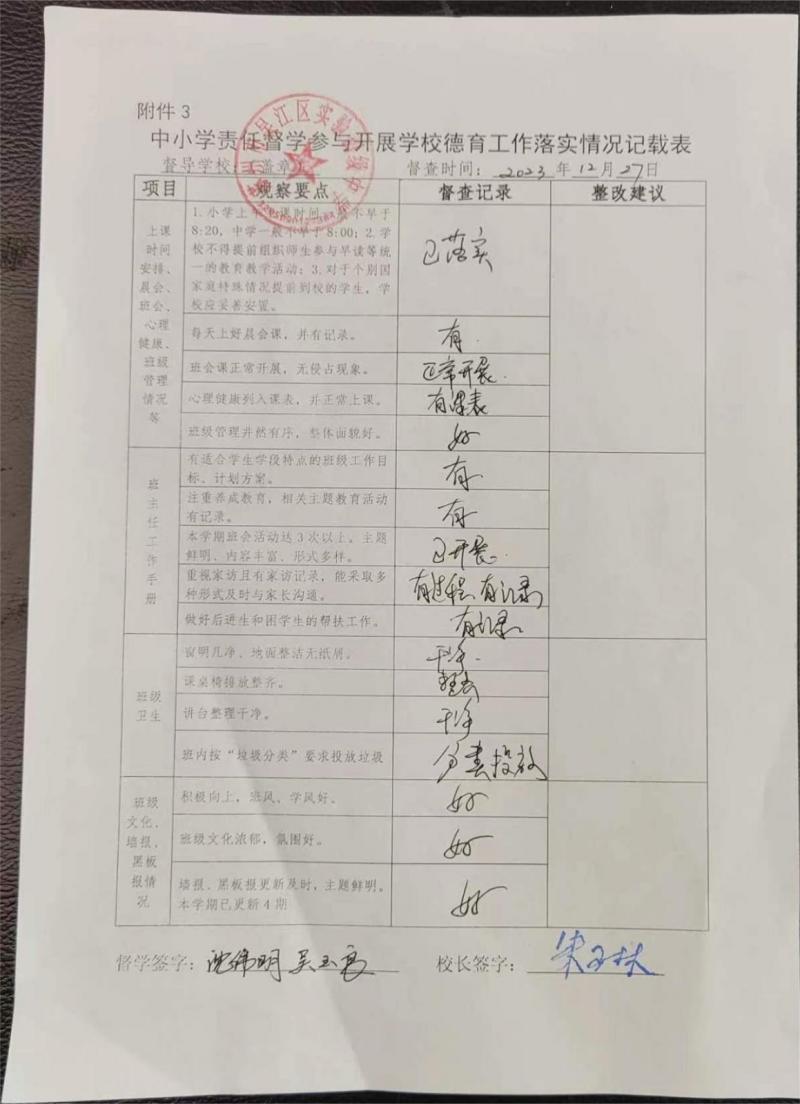 附件 3
中小学责任督学参与开展学校德育工作落实情况记载表
督导学校：（盖章）
督查时间： 2023 年 12 月 27 日
项目 观察要点 督查记录 整改建议
上课
时间
安排、
晨会、
班会、
心理
健康、
班级
管理
情况
等
1.小学上午上课时间一般不早于
8:20，中学一般不早于 8:00；2.学
校不得提前组织师生参与早读等统
一的教育教学活动；3.对于个别因
家庭特殊情况提前到校的学生，学
校应妥善安置。
已落实
每天上好晨会课，并有记录。
有.
班会课正常开展，无侵占现象。
正常开展.
心理健康列入课表，并正常上课。
有课表
班级管理井然有序，整体面貌好。
好
班
主
任
工
作
手
册
有适合学生学段特点的班级工作目
标、计划方案。
有
注重养成教育，相关主题教育活动
有记录。
有
本学期班会活动达 3 次以上。主题
鲜明、内容丰富、形式多样。
已开展.
重视家访且有家访记录，能采取多
种形式及时与家长沟通。
有过程,有记录
做好后进生和困学生的帮扶工作。
有记录.
班级
卫生
窗明几净、地面整洁无纸屑。
干净.
课桌椅排放整齐。
讲台整理干净。
干净
班内按“垃圾分类”要求投放垃圾
分类投放
班级
文化、
墙报、
黑板
报情
况
积极向上，班风、学风好。
好
班级文化浓郁，氛围好。
好
墙报、黑板报更新及时，主题鲜明。
本学期已更新 4 期
好
督学签字： 沈伟明 吴玉亮
校长签字： 朱玉林